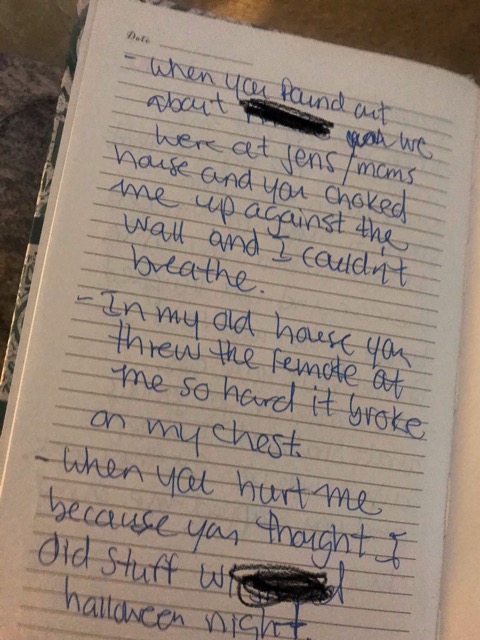 Date
- when you found out
about we
were at jens/moms
house and you choked
me up against the
wall and I couldn't
breathe.
- In my old house you
threw the remote at
me so hard it broke
on my chest.
- when you hurt me
because you thought I
did stuff w
halloween night.